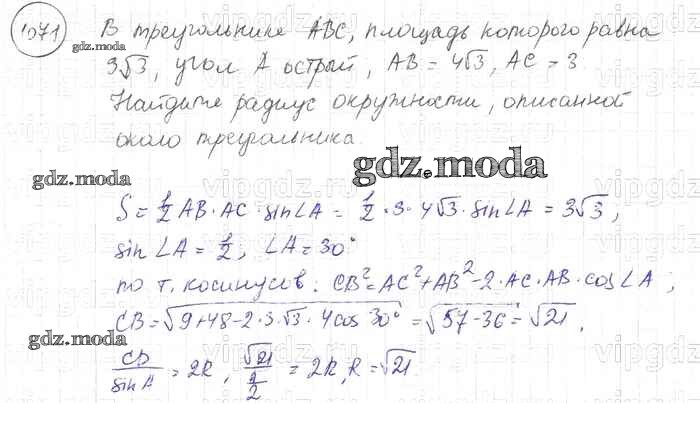 1071 В треугольнике ABC, площадь которого равна
3√3, угол A острый, AB = 4√3, AC = 3.
Найдите радиус окружности, описанной
около треугольника.
gdz.moda
gdz.moda
gdz.moda
S = 1/2 AB · AC · sin∠A = 1/2 · 3 · 4√3 · sin∠A = 3√3,
sin∠A = 1/2, ∠A = 30°
по т. косинусов: CB² = AC² + AB² - 2 · AC · AB · cos∠A;
CB = √(9+48-2·3·√3·4cos30°) = √(57-36) = √21,
gdz.moda
CB/sinA = 2R, √21/(1/2) = 2R, R = √21.